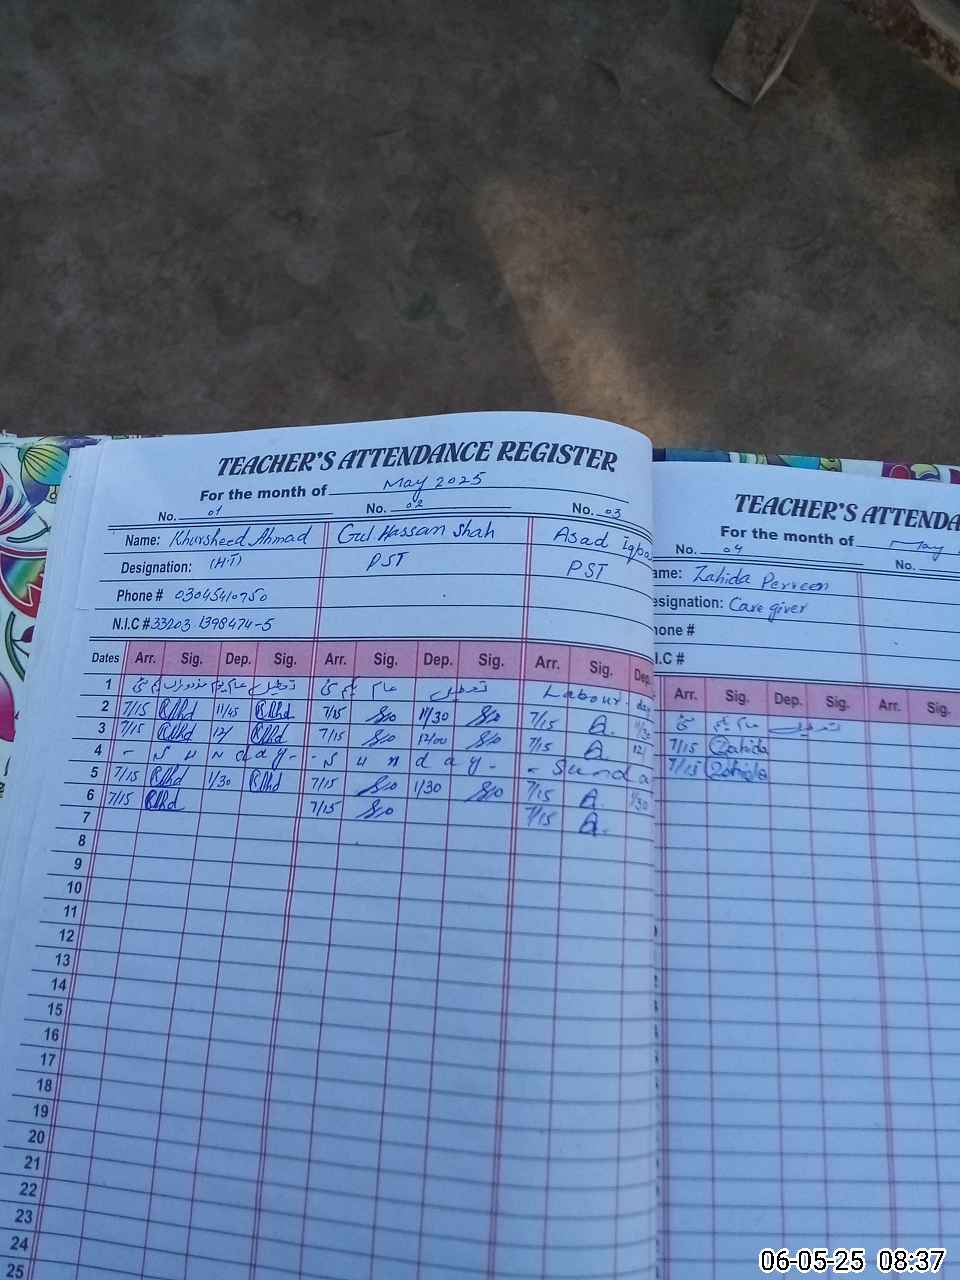 TEACHER'S ATTENDANCE REGISTER
For the month of May 2025
No. 01 No. 02 No. 03
Name: Khursheed Ahmad Gul Hassan Shah Asad Iqba
Designation: (H.T) PST PST
Phone # 03045410750
N.I.C # 33203 1398474-5
Dates Arr. Sig. Dep. Sig. Arr. Sig. Dep. Sig. Arr. Sig. Dep.
1 عام تعطیل Labour day
2 7/15 11/45 7/15 11/30 7/15
3 7/15 12/ 7/15 12/00 7/15 12/
4 - Sunday - - Sunday - - Sunda
5 7/15 1/30 7/15 1/30 7/15 1/30
6 7/15 7/15 7/15
7
8
9
10
11
12
13
14
15
16
17
18
19
20
21
22
23
24
25
TEACHER'S ATTENDA
For the month of May
No. 04 No.
ame: Zahida Perveen
esignation: Care giver
hone #
.I.C #
Arr. Sig. Dep. Sig. Arr. Sig.
عام تعطیل
7/15 Zahida
7/15 Zahida
06-05-25 08:37